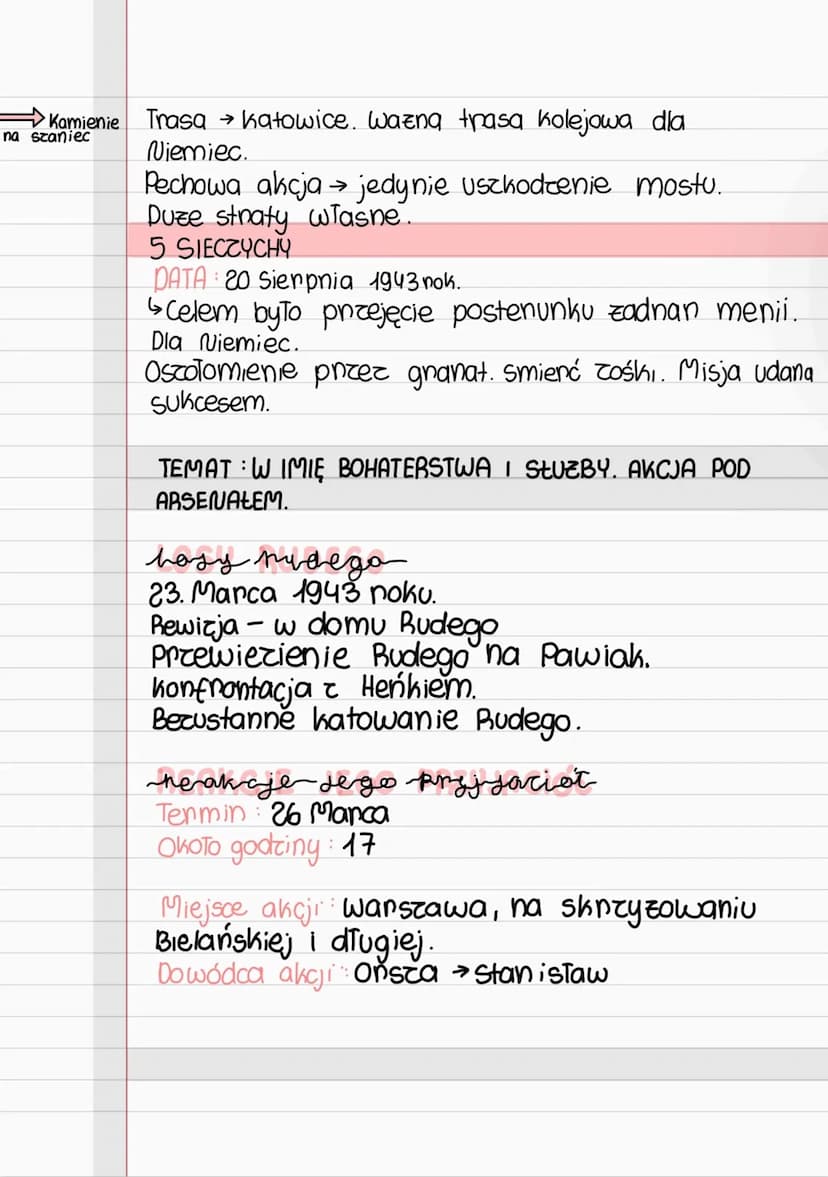 Kamienie
na szaniec
Trasa → Katowice. Ważna trasa kolejowa dla
Niemiec.
Pechowa akcja → jedynie uszkodzenie mostu.
Duże straty własne.
5 SIECZYCHY
DATA: 20 Sierpnia 1943 rok.
↳ Celem było przejęcie posterunku żadnar merii.
Dla Niemiec.
Oszołomienie przez granat. Smierć Zośki. Misja udana
sukcesem.
TEMAT: W IMIĘ BOHATERSTWA I SŁUŻBY. AKCJA POD
ARSENAŁEM.
Losy Rudego
23. Marca 1943 roku.
Rewizja – w domu Rudego
Przewiezienie Rudego na Pawiak.
Konfrontacja z Heńkiem.
Bezustanne katowanie Rudego.
Reakcje Jego Przyjaciół
Termin: 26 Marca
Około godziny: 17
Miejsce akcji: Warszawa, na skrzyżowaniu
Bielańskiej i długiej.
Dowódca akcji: Orsza → Stanisław